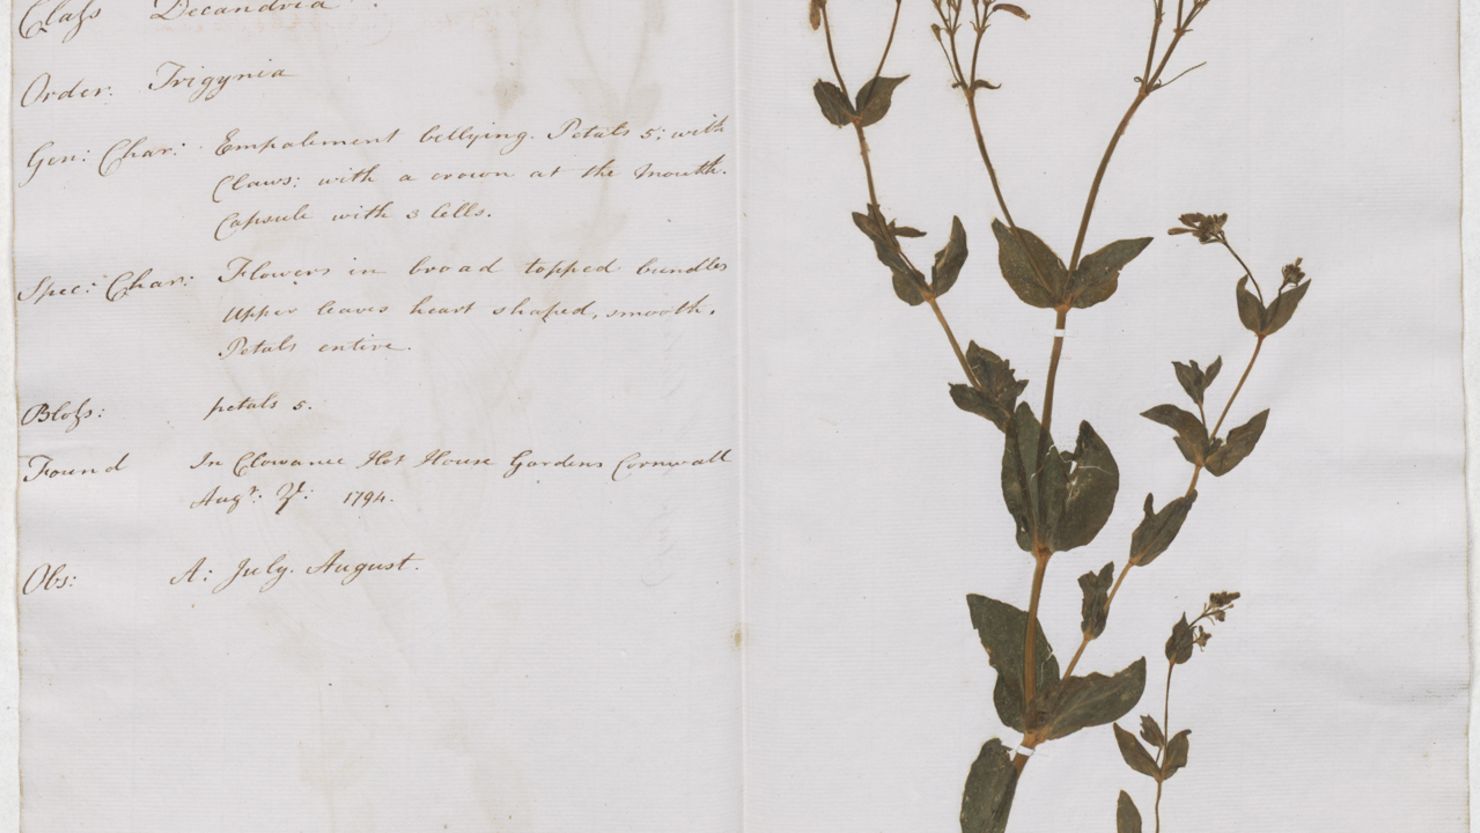 Class Decandria.
Order: Trigynia
Gen: Char: Empalement bellying. Petals 5; with
Claws; with a crown at the Mouth.
Capsule with 3 Cells.
Spec: Char: Flowers in broad topped bundles
Upper leaves heart shaped, smooth.
Petals entire.
Bloss: petals 5.
Found In Clowance Hot House Gardens Cornwall
Augst: 1794.
Obs: A: July. August.